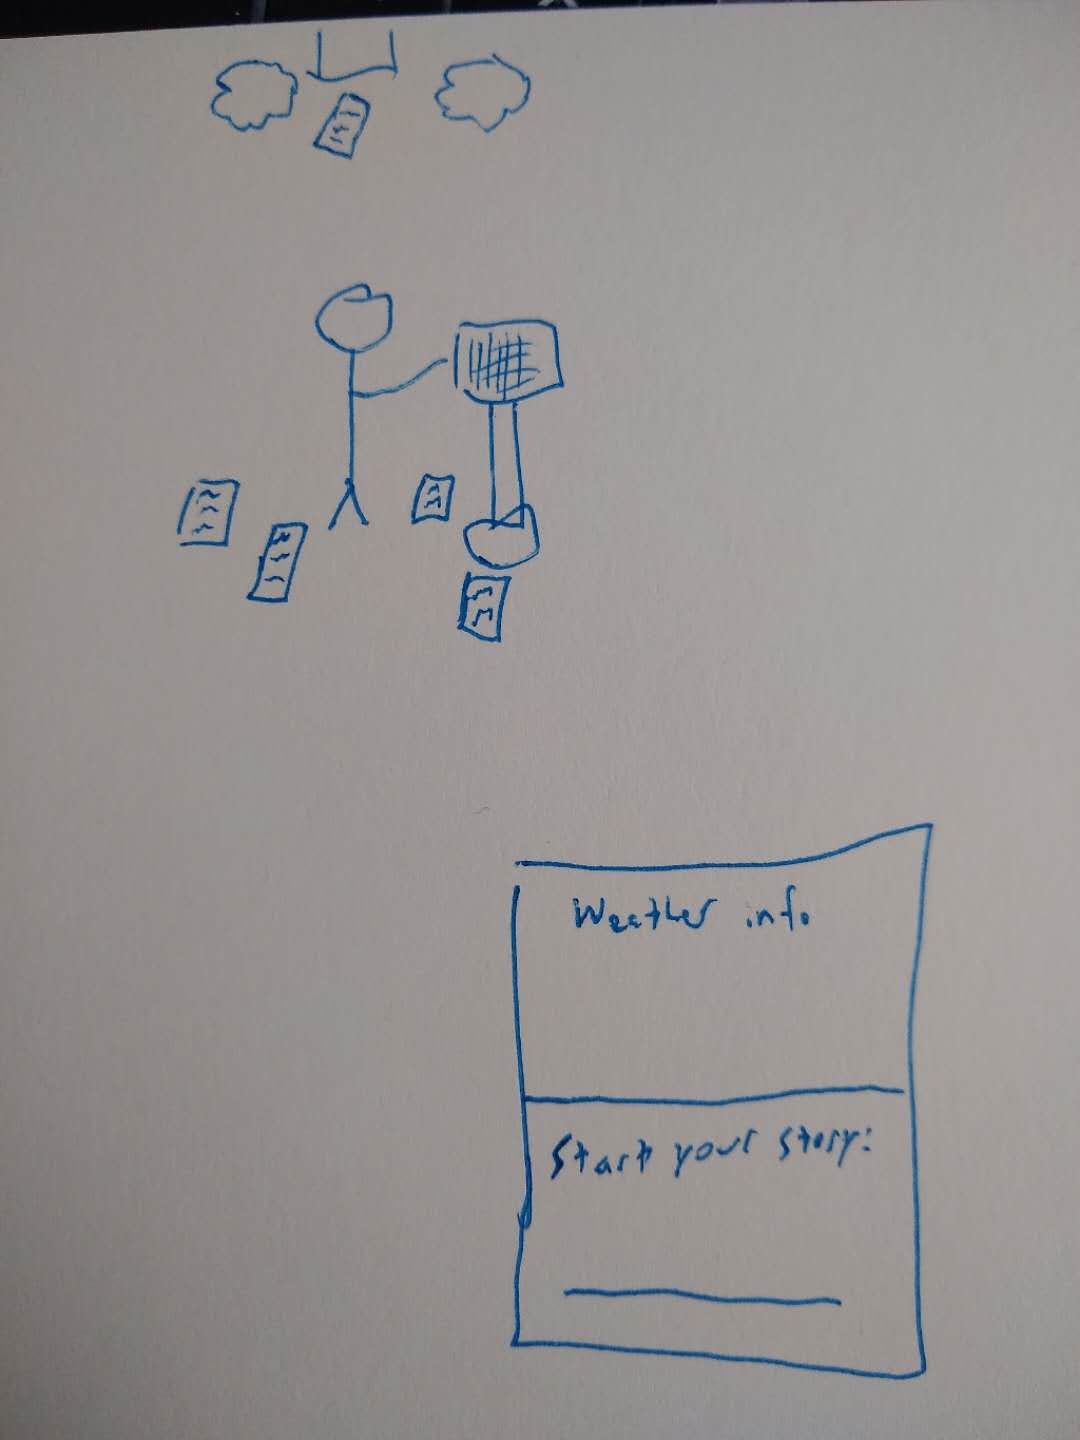 Weather info
Start your story: